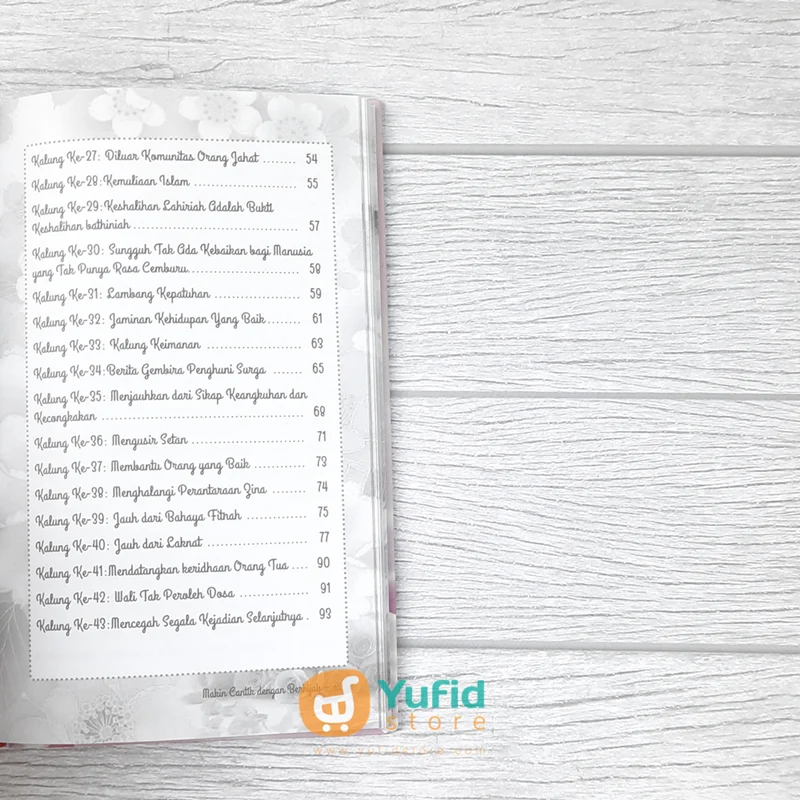 Kalung Ke-27: Diluar Komunitas Orang Jahat ........ 54
Kalung Ke-28: Kemuliaan Islam ........................ 55
Kalung Ke-29: Keshalihan Lahiriah Adalah Bukti
Keshalihan bathiniah ........................................ 57
Kalung Ke-30: Sungguh Tak Ada Kebaikan bagi Manusia
yang Tak Punya Rasa Cemburu........................... 58
Kalung Ke-31: Lambang Kepatuhan .................... 59
Kalung Ke-32: Jaminan Kehidupan Yang Baik ........ 61
Kalung Ke-33: Kalung Keimanan ...................... 63
Kalung Ke-34: Berita Gembira Penghuni Surga ...... 65
Kalung Ke-35: Menjauhkan dari Sikap Keangkuhan dan
Kecongkakan .............................................. 69
Kalung Ke-36: Mengusir Setan ......................... 71
Kalung Ke-37: Membantu Orang yang Baik ............ 73
Kalung Ke-38: Menghalangi Perantaraan Zina ........ 74
Kalung Ke-39: Jauh dari Bahaya Fitnah .............. 75
Kalung Ke-40: Jauh dari Laknat ...................... 77
Kalung Ke-41: Mendatangkan keridhaan Orang Tua .... 90
Kalung Ke-42: Wali Tak Peroleh Dosa ................ 91
Kalung Ke-43: Mencegah Segala Kejadian Selanjutnya . 93
Makin Cantik dengan
Yufid
store
www.yufidstore.com